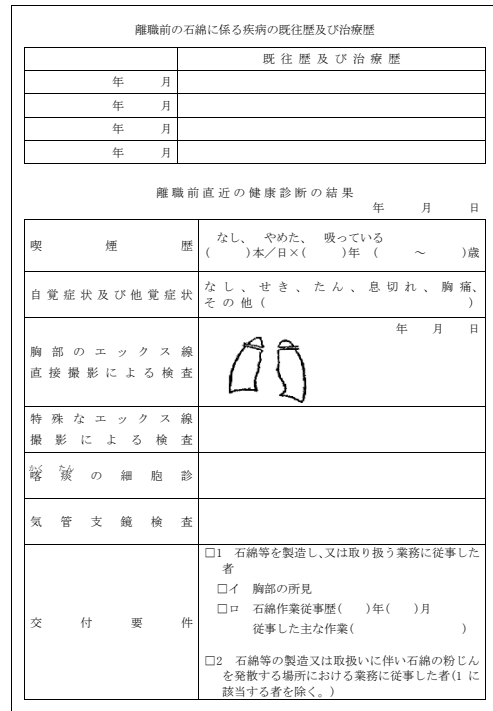 離職前の石綿に係る疾病の既往歴及び治療歴
既往歴及び治療歴
年 月
年 月
年 月
年 月
離職前直近の健康診断の結果
年 月 日
喫煙歴
なし、 やめた、 吸っている
( )本／日×( )年 ( ～ )歳
自覚症状及び他覚症状
なし、せき、たん、息切れ、胸痛、
その他( )
胸部のエックス線
直接撮影による検査
年 月 日
特殊なエックス線
撮影による検査
かく たん
喀痰の細胞診
気管支鏡検査
交付要件
□1 石綿等を製造し、又は取り扱う業務に従事した
者
□イ 胸部の所見
□ロ 石綿作業従事歴( )年( )月
従事した主な作業( )
□2 石綿等の製造又は取扱いに伴い石綿の粉じん
を発散する場所における業務に従事した者(1に
該当する者を除く。)